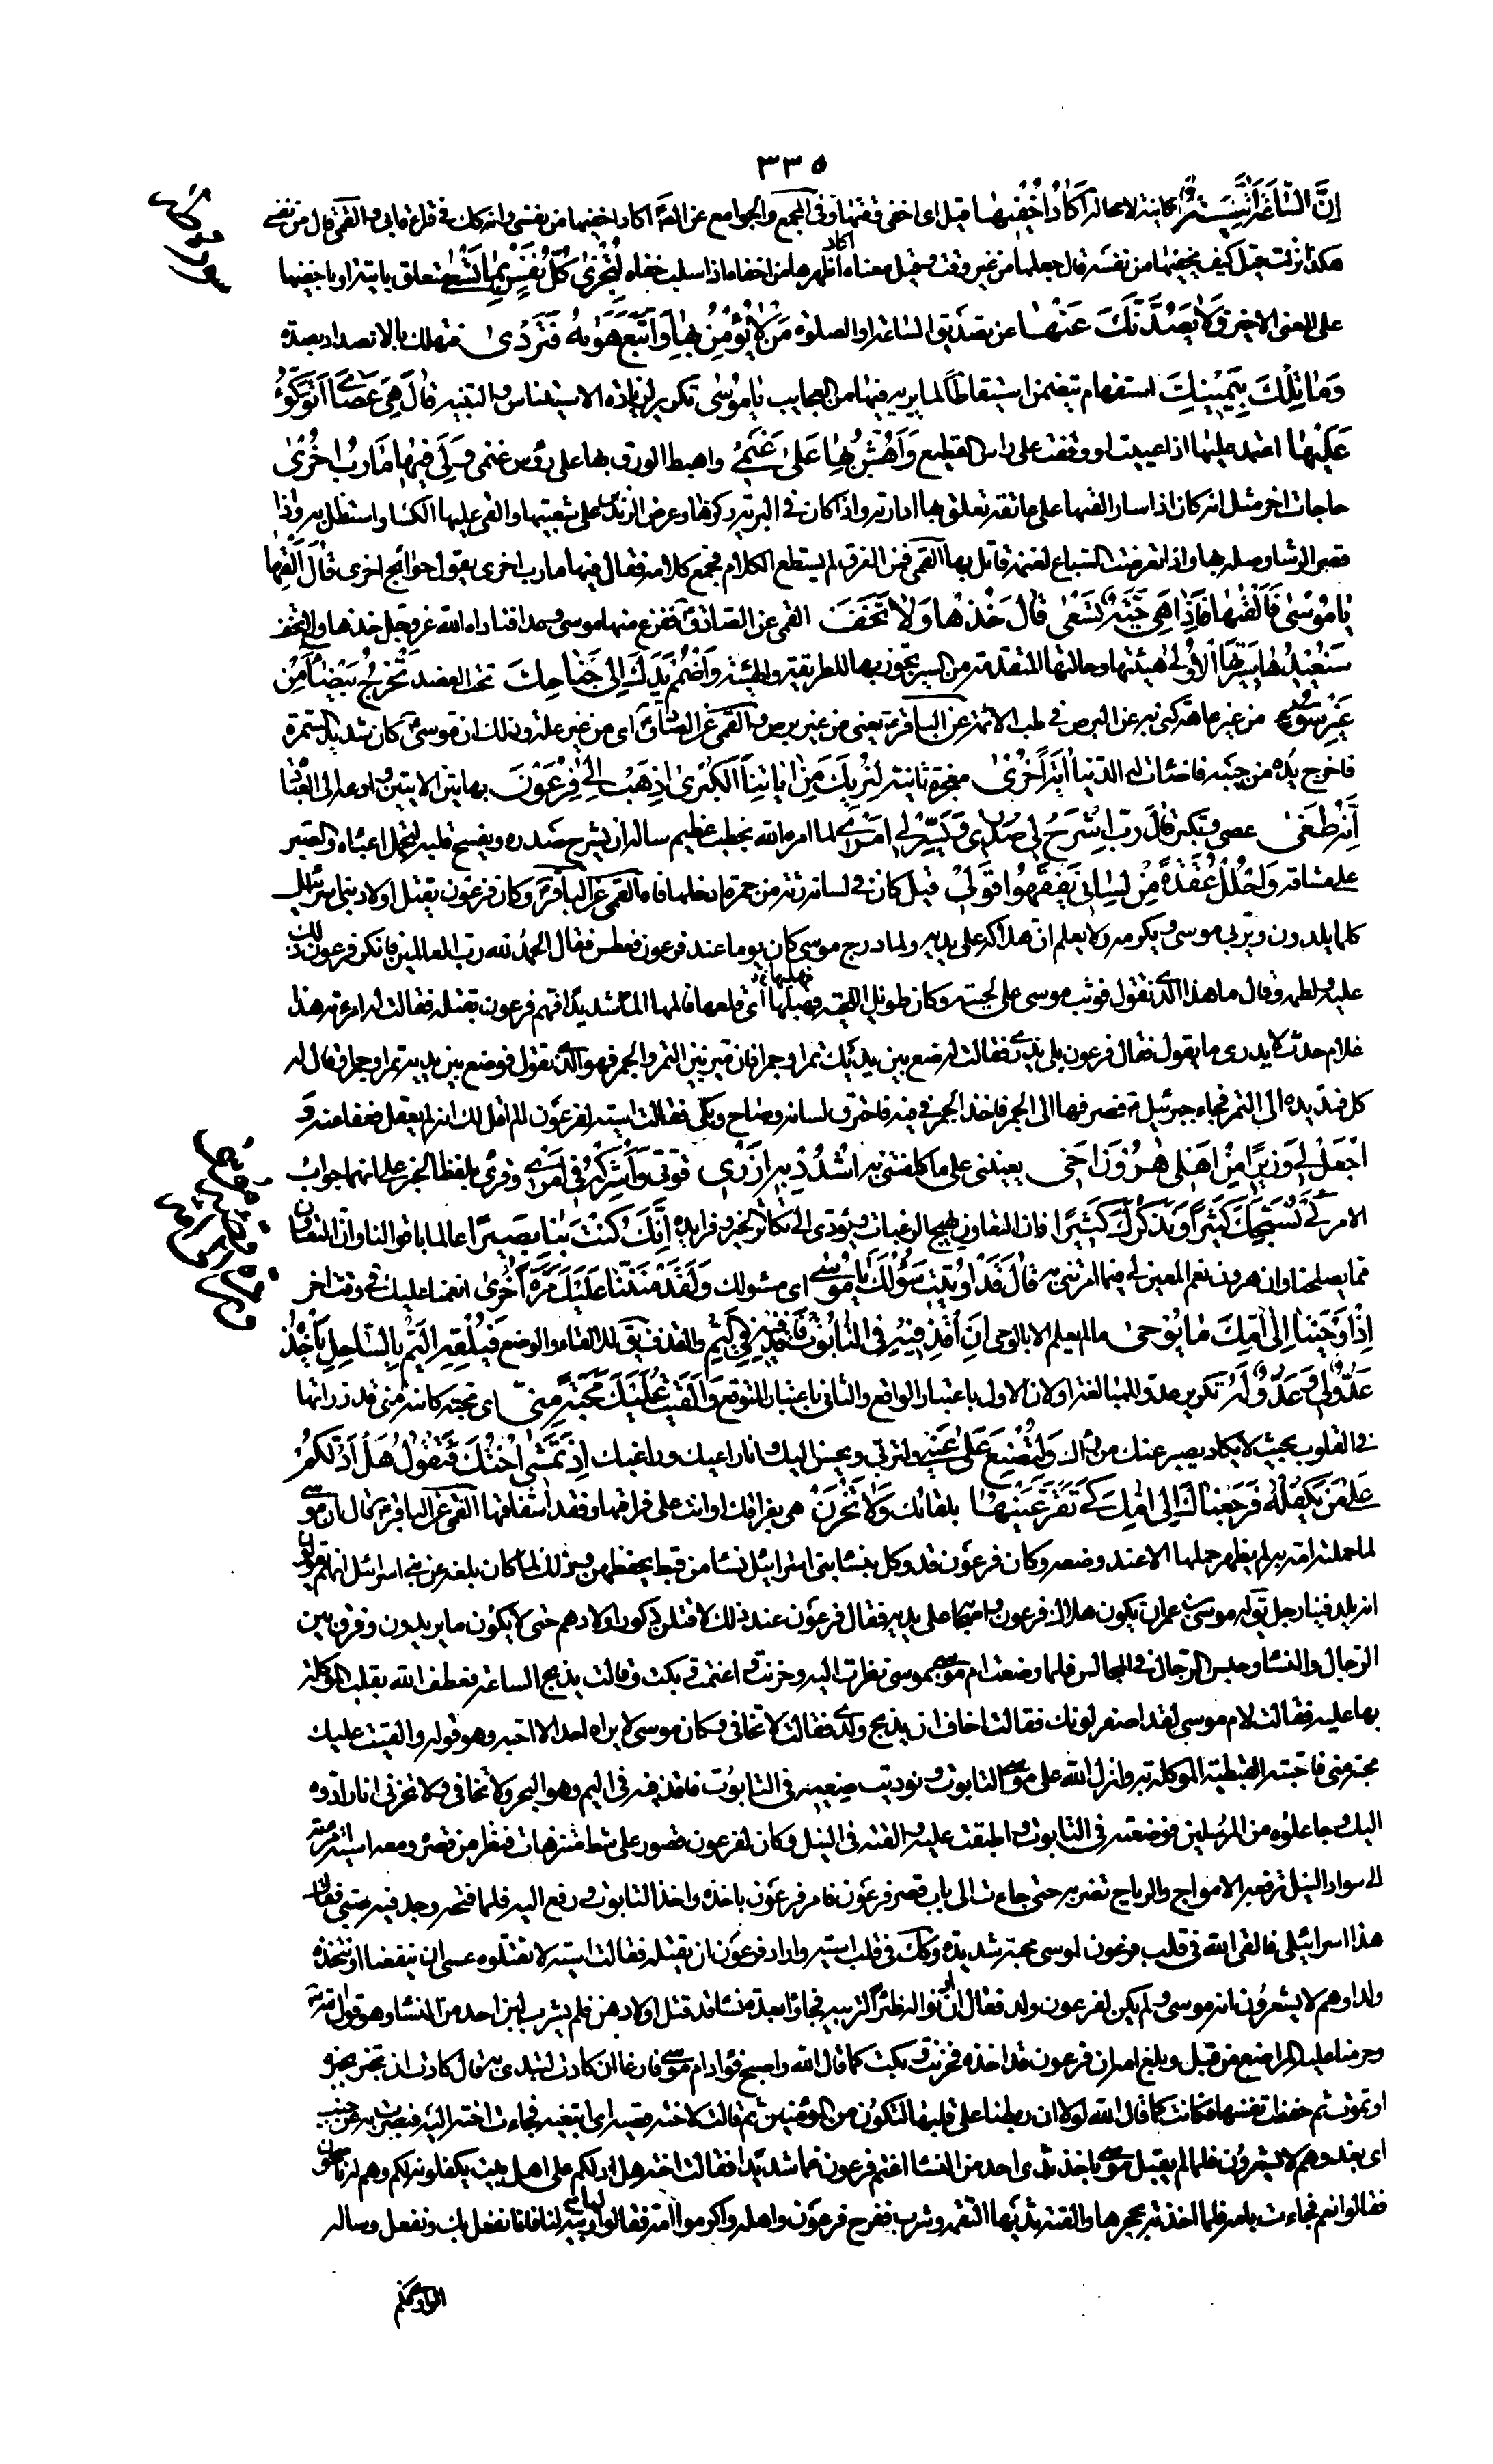 ٣٣٥
إِنَّ السّاعَةَ آتِيَةٌ كاينة لا محالة أَكادُ أُخْفِيها قيل اى اخفى وقتها وفى المجمع والجوامع عن الصّادق اكاد اخفيها من نفسى وانه كك فى قراءة ابى والقمى قال من نفسى
هكذا نزلت قيل كيف يخفيها من نفسه قال جعلها من غير وقت وقيل معناه اكاد اظهرها من اخفاه اذا سلب خفاه لِتُجْزى كُلُّ نَفْسٍ بِما تَسْعى متعلق باتية او باخفيها
على المعنى الاخير فَلا يَصُدَّنَّكَ عَنْها عن تصديق الساعة او الصلوة مَنْ لا يُؤْمِنُ بِها وَاتَّبَعَ هَويهُ فَتَرْدى فتهلك بالانصداد بصده
وَما تِلْكَ بِيَمِينِكَ استفهام يتضمن استيقاظا لما يريه فيها من العجايب يا مُوسى تكرير لزيادة الاستيناس والتنبيه قالَ هِيَ عَصايَ أَتَوَكَّؤُ
عَلَيْها اعتمد عليها اذا عييت او وقفت على راس القطيع وَأَهُشُّ بِها عَلى غَنَمِي واهبط الورق بها على رؤس غنمى وَلِيَ فِيها مَآرِبُ أُخْرى
حاجات اخر مثل انه كان اذا سار القيها على عاتقه فعلق بها ادارته واذا كان فى البرية ركزها وعرض الزندين على شعبتيها والقى عليها الكساء واستظل به واذا
قصر الرشا وصله بها واذا تعرضت السباع لغنمه قاتل بها القمى فمن الفرق لم يستطع الكلام فجمع كلامه فقال فيها مارب اخرى يقول حوائج اخرى قالَ أَلْقِها
يا مُوسى فَأَلْقيها فَإِذا هِيَ حَيَّةٌ تَسْعى قالَ خُذْها وَلا تَخَفْ القمى عن الصّادق ففزع منها موسى وعدا فناداه الله عز وجل خذها ولا تخف
سَنُعِيدُها سِيرَتَهَا الْأُولى هيئتها وحالتها المتقدمة من السير تجوز بها للطريقة والهيئة وَاضْمُمْ يَدَكَ إِلى جَناحِكَ تحت العضد تَخْرُجْ بَيْضاءَ مِنْ
غَيْرِ سُوءٍ من غير عاهة كنى به عن البرص فى طب الائمة عن الباقر ع يعنى من غير برص والقمى عن الصادق اى من غير علة وذلك ان موسى كان شديد السمرة
فاخرج يده من جيبه فاضائت له الدنيا آيَةً أُخْرى معجزة ثانية لِنُرِيَكَ مِنْ آياتِنَا الْكُبْرى اذْهَبْ إِلى فِرْعَوْنَ بهاتين الايتين وادعه الى العبادة
إِنَّهُ طَغى عصى وتكبر قالَ رَبِّ اشْرَحْ لِي صَدْرِي وَيَسِّرْ لِي أَمْرِي لما امره الله بخطب عظيم ساله ان يشرح صدره ويفسح قلبه لتحمل اعبائه والصبر
على مشاقه وَاحْلُلْ عُقْدَةً مِنْ لِسانِي يَفْقَهُوا قَوْلِي قيل كان فى لسانه رتة من جمرة ادخلها فاه القمى عن الباقر ع وكان فرعون يقتل اولاد بنى اسرائيل
كلما يلدون ويربى موسى ويكرمه ولا يعلم ان هلاكه على يديه ولما درج موسى كان يوما عند فرعون فعطس فقال الحمد لله رب العالمين فانكر فرعون ذلك
عليه ولطمه وقال ما هذا الذى تقول فوثب موسى على لحيته وكان طويل اللحية فهبلها اى قلعها فالمها الما شديدا فهم فرعون بقتله فقالت له امرءته هذا
غلام حدث لا يدرى ما يقول فقال فرعون بلى يدرى فقالت له ضع بين يديك تمرا وجمرا فان ميز بين التمر والجمر فهو الذى تقول فوضع بين يديه تمرا وجمرا وقال له
كل فمد يده الى التمر فجاء جبرئيل ع فصرفها الى الجمر فاخذ الجمر فى فيه فاحترق لسانه وصاح وبكى فقالت اسية لفرعون الم اقل لك انه لم يعقل فعفا عنه وَ
اجْعَلْ لِي وَزِيراً مِنْ أَهْلِي هارُونَ أَخِي يعيننى على ما كلفتنى به اشْدُدْ بِهِ أَزْرِي قوتى وَأَشْرِكْهُ فِي أَمْرِي وقرئ بلفظ الخبر على انهما جواب
الامر كَيْ نُسَبِّحَكَ كَثِيراً وَنَذْكُرَكَ كَثِيراً فان التعاون يهيج الرغبات ويؤدى الى تكاثر الخير وتزايده إِنَّكَ كُنْتَ بِنا بَصِيراً عالما باحوالنا وان التعاون
مما يصلحنا وان هرون نعم المعين لى فيما امرتنى به قالَ قَدْ أُوتِيتَ سُؤْلَكَ يا مُوسى اى مسئولك وَلَقَدْ مَنَنَّا عَلَيْكَ مَرَّةً أُخْرى انعمنا عليك فى وقت اخر
إِذْ أَوْحَيْنا إِلى أُمِّكَ ما يُوحى ما لم يعلم الا بالوحى أَنِ اقْذِفِيهِ فِي التَّابُوتِ فَاقْذِفِيهِ فِي الْيَمِّ والقذف يق للالقاء والوضع فَلْيُلْقِهِ الْيَمُّ بِالسَّاحِلِ يَأْخُذْهُ
عَدُوٌّ لِي وَعَدُوٌّ لَهُ تكرير عدو للمبالغة او لان الاول باعتبار الواقع والثانى باعتبار المتوقع وَأَلْقَيْتُ عَلَيْكَ مَحَبَّةً مِنِّي اى محبة كائنة منى قد زرعتها
فى القلوب بحيث لا يكاد يصبر عنك من راك وَلِتُصْنَعَ عَلى عَيْنِي ولتربى ويحسن اليك وانا راعيك وراقبك إِذْ تَمْشِي أُخْتُكَ فَتَقُولُ هَلْ أَدُلُّكُمْ
عَلى مَنْ يَكْفُلُهُ فَرَجَعْناكَ إِلى أُمِّكَ كَيْ تَقَرَّ عَيْنُها بلقائك وَلا تَحْزَنَ هى بفراقك او انت على فراقها وفقد اشفاقها القمى عن الباقر ع قال ان موسى
لما حملت امه به لم يظهر حملها الا عند وضعه وكان فرعون قد وكل بنساء بنى اسرائيل نساء من قبط يحفظهن وذلك لما كان بلغه عن بنى اسرائيل انهم يقولون
انه يلد فينا رجل يق له موسى بن عمران يكون هلاك فرعون واصحابه على يديه فقال فرعون عند ذلك لاقتلن ذكور اولادهم حتى لا يكون ما يريدون وفرق بين
الرجال والنساء وحبس الرجال فى المجالس فلما وضعت ام موسى بموسى نظرت اليه وحزنت واغتمت وبكت وقالت يذبح الساعة فعطف الله بقلب الموكلة
بها عليه فقالت لام موسى لقد اصفر لونك فقالت اخاف ان يذبح ولدى فقالت لا تخافى وكان موسى لا يراه احد الا احبه وهو قوله والقيت عليك
محبة منى فاحبته القبطية الموكلة به وانزل الله على موسى التابوت ونوديت ضعيه فى التابوت فاقذفيه فى اليم وهو البحر ولا تخافى ولا تحزنى انا رادوه
اليك وجاعلوه من المرسلين فوضعته فى التابوت واطبقت عليه والقته فى النيل وكان لفرعون قصور على شط متنزهات فنظر من قصره ومعه اسية امرءته
الى سواد النيل ترفعه الامواج والرياح تضربه حتى جاءت الى باب قصر فرعون فامر فرعون باخذه واخذ التابوت ورفع اليه فلما فتحه وجد فيه صبى فقال
هذا اسرائيلى فالقى الله فى قلب فرعون لموسى محبة شديدة وكك فى قلب اسية واراد فرعون ان يقتله فقالت اسية لا تقتلوه عسى ان ينفعنا او نتخذه
ولدا وهم لا يشعرون انه موسى ولم يكن لفرعون ولد فقال له ظئرا لتربيه فجاؤا بعدة نساء قد قتل اولادهن فلم يشرب لبن احد من النساء وهو قول الله
وحرمنا عليه المراضع من قبل وبلغ امه ان فرعون قد اخذه فحزنت وبكت كما قال الله واصبح فؤاد ام موسى فارغا ان كادت لتبدى به قال كادت ان تخبر بخبره
او تموت ثم حفظت نفسها فكانت كما قال الله لولا ان ربطنا على قلبها لتكون من المؤمنين ثم قالت لاخته قصيه اى اتبعيه فجاءت اخته اليه فبصرت به عن جنب
اى بعد وهم لا يشعرون فلما لم يقبل موسى باخذ ثدى احد من النساء اغتم فرعون غما شديدا فقالت اخته هل ادلكم على اهل بيت يكفلونه لكم وهم له ناصحون
فقالوا نعم فجاءت بامه فلما اخذته بحجرها والقمته ثديها التقمه وشرب ففرح فرعون واهله واكرموا امه فقالوا لها ربيه لنا فانا نفعل بك ونفعل وساله